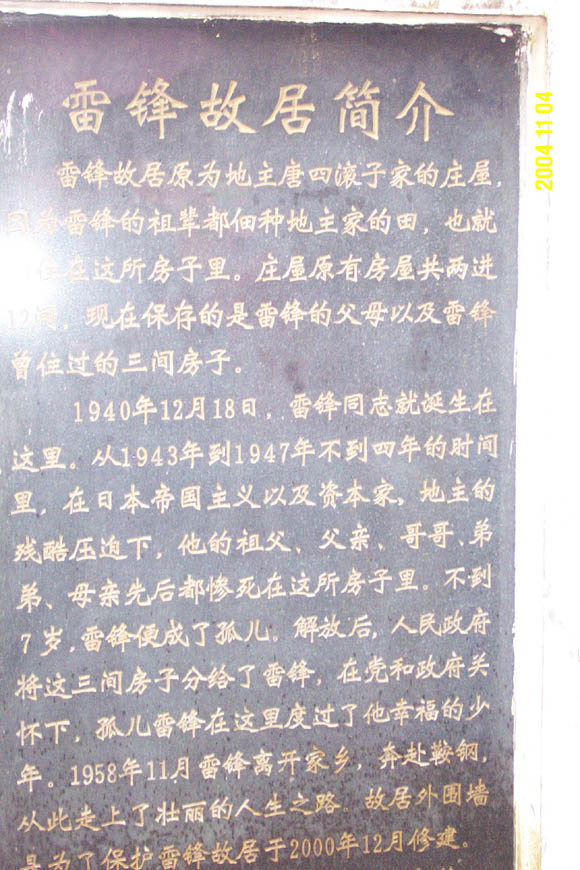 雷锋故居简介
雷锋故居原为地主唐四滚子家的庄屋,
因为雷锋的祖辈都佃种地主家的田，也就
住在这所房子里。庄屋原有房屋共两进
12间，现在保存的是雷锋的父母以及雷锋
曾住过的三间房子。
1940年12月18日，雷锋同志就诞生在
这里。从1943年到1947年不到四年的时间
里，在日本帝国主义以及资本家，地主的
残酷压迫下，他的祖父、父亲、哥哥、弟
弟、母亲先后都惨死在这所房子里。不到
7岁,雷锋便成了孤儿。解放后，人民政府
将这三间房子分给了雷锋，在党和政府关
怀下，孤儿雷锋在这里度过了他幸福的少
年。1958年11月雷锋离开家乡，奔赴鞍钢,
从此走上了壮丽的人生之路。故居外围墙
是为了保护雷锋故居于2000年12月修建。
2004 11 04